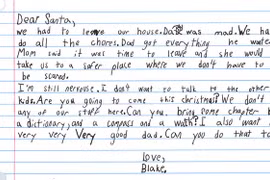 Dear Santa,
we had to leave our house. Dad was mad. We ha
do all the chores. Dad got everything he wante
Mom said it was time to leave and she would
take us to a safer place where we don't have to
be scared.
I'm still nervouse. I don't want to talk to the other
kids. Are you going to come this christmas? We don't
any of our stuff here. Can you bring some chapter b
a dictionary, and a compass and a watch? I also want
very very very good dad. Can you do that to
Love,
Blake.